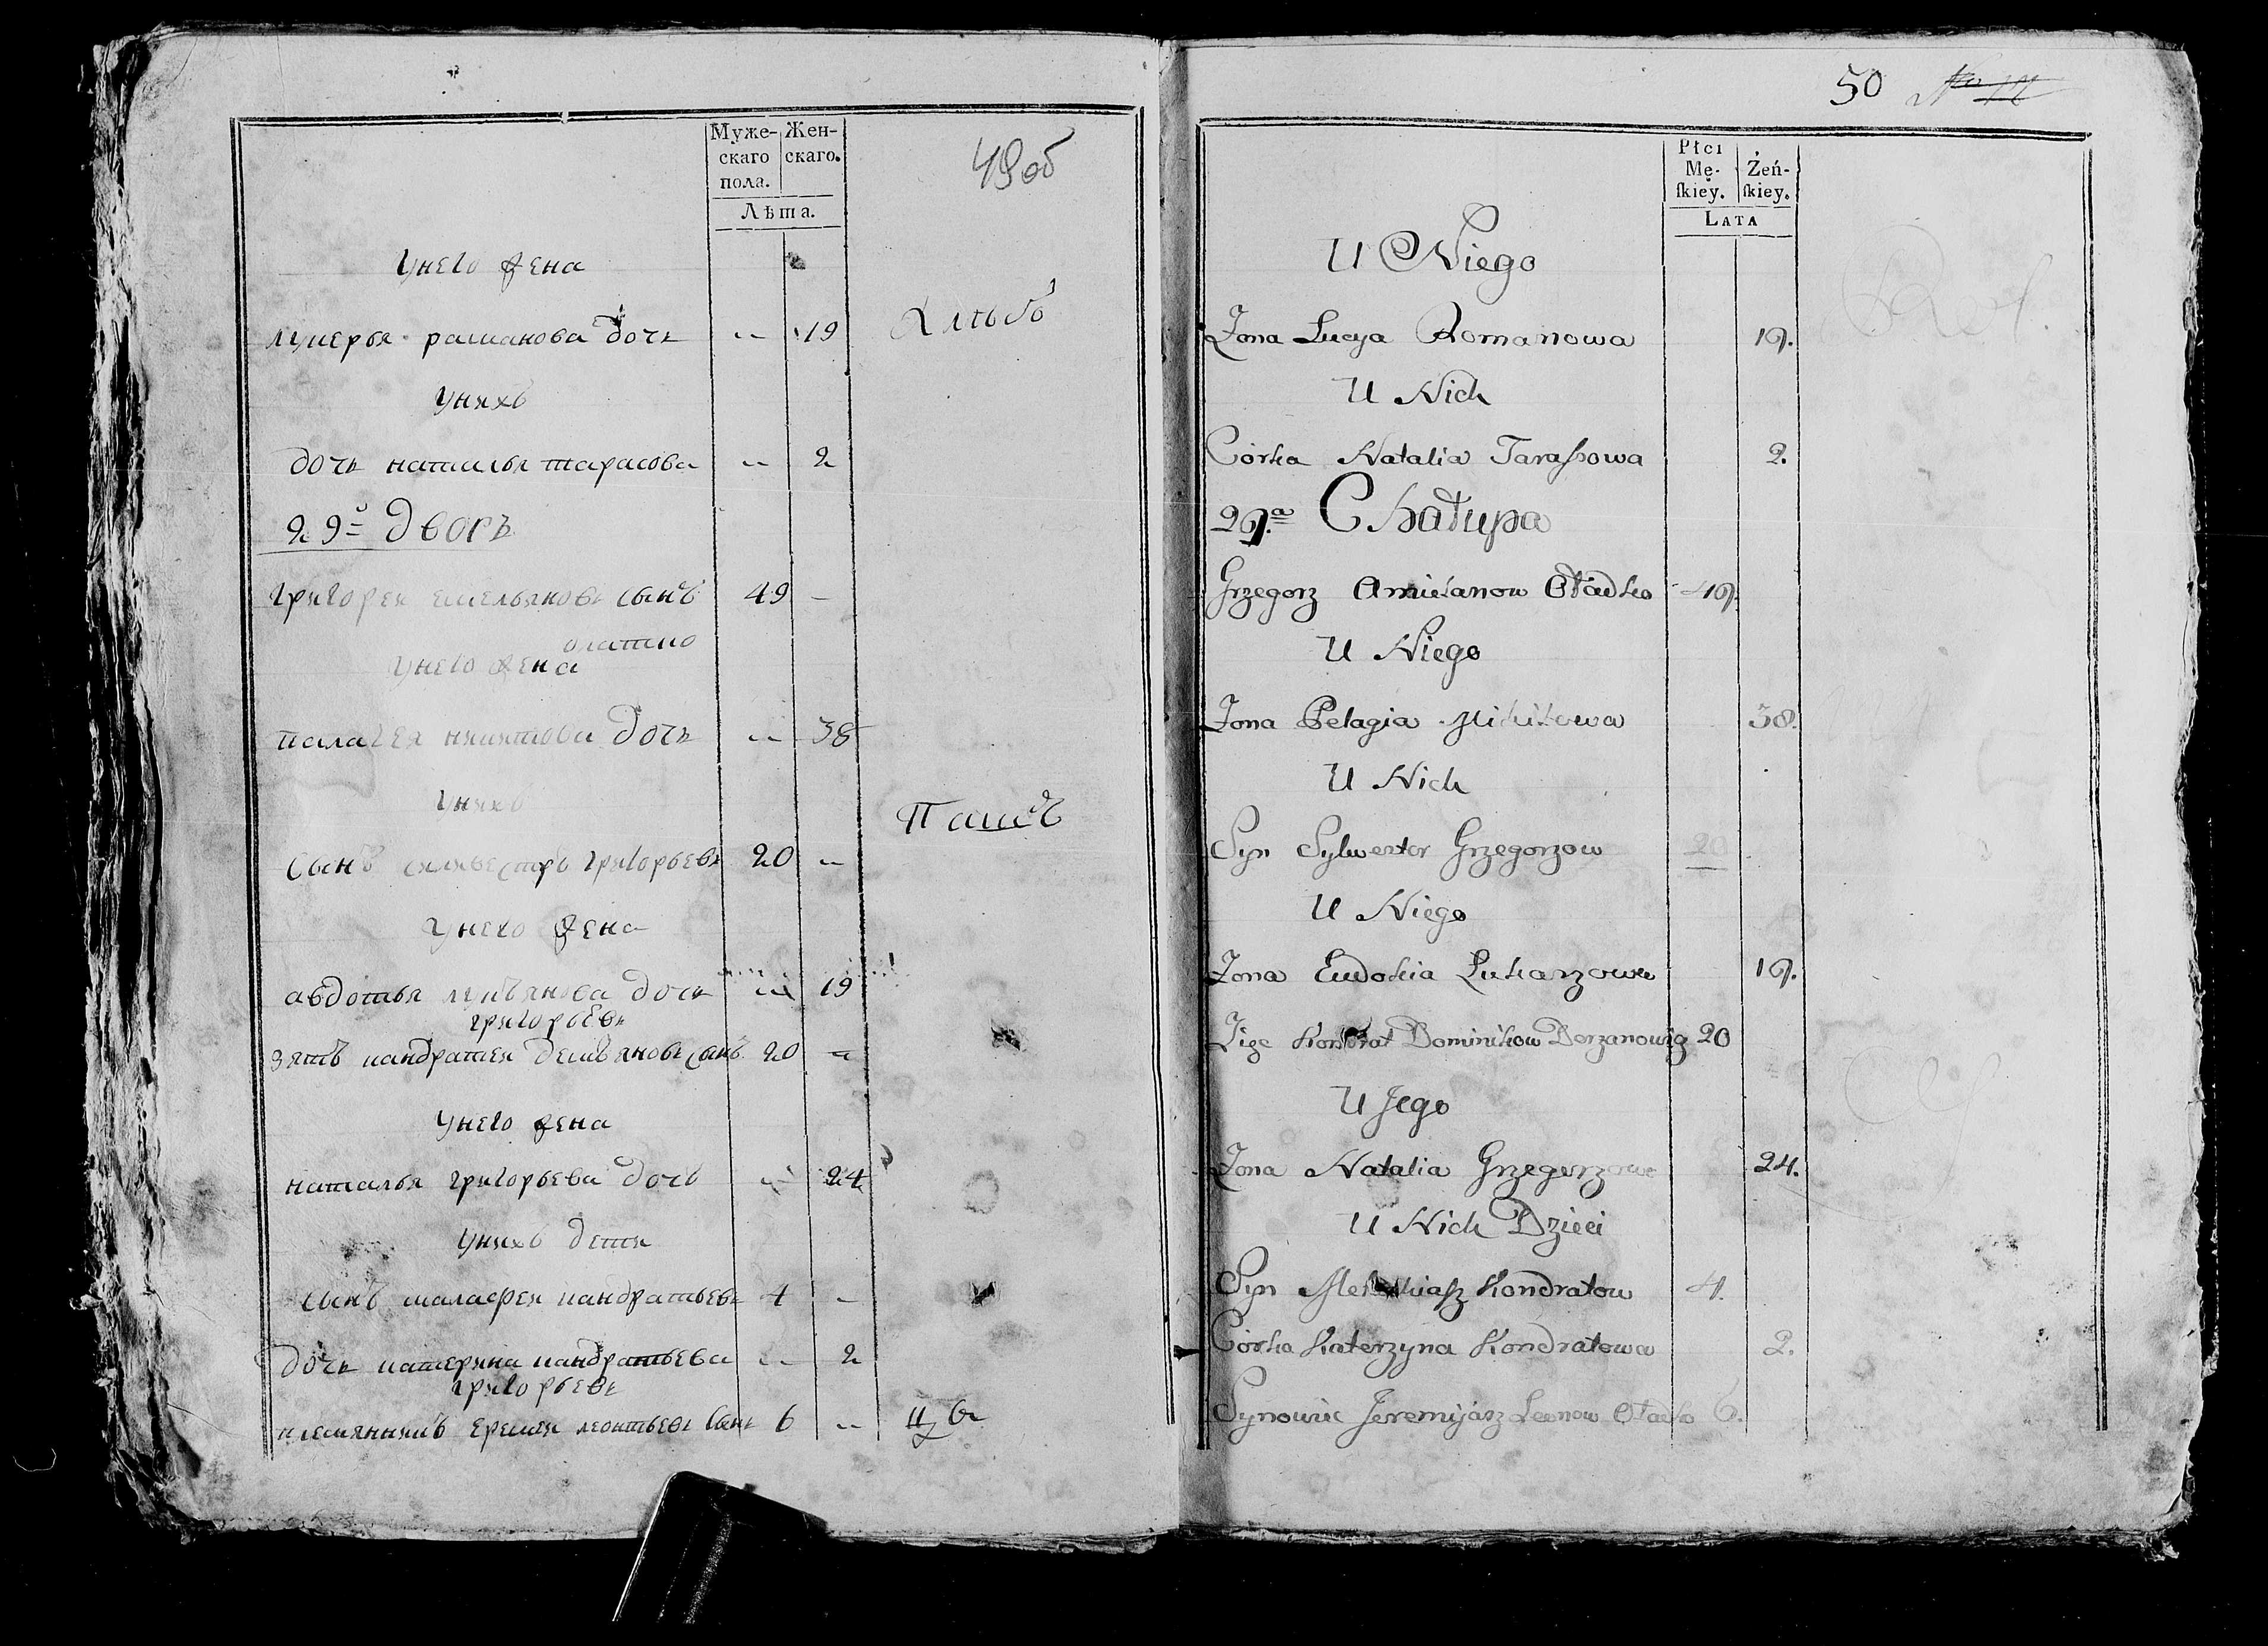 Муже-
скаго
пола.
Жен-
скаго.
Лѣта.
49об
Унего жена
лукерья романова дочь -- 19
Унихъ
дочь наталья тарасова -- 2
29й дворъ
григорей емельяновъ сынъ 49 -
олатко
Унего жена
палагея никитова дочь -- 38
Унихъ
сынъ силвестръ григорьевъ 20 --
Унего жена
авдотья лукьянова дочь -- 19
григорьевъ
зять кандратей демьяновъ сынъ 20 --
Унего жена
наталья григорьева дочь -- 24
Унихъ дети
сынъ малафей кандратьевъ 4 -
дочь катерина кандратьева -- 2
григорьевъ
племянникъ еремей леонтьевъ сынъ 6 --
50 No 12
Płci
Mę-
ſkiey.
Żeń-
ſkiey.
LATA
U Niego
Zona Lucya Romanowa 19.
U Nich
Córka Natalia Taraſsowa 2.
29.a Chałupa
Grzegorz Amielanow Oładko 49.
U Niego
Zona Pelagia Mikitowa 38.
U Nich
Syn Sylwester Grzegorzow 20
U Niego
Zona Eudokia Lukaszowa 19.
Zięc Kondrat Dominikow Derzanowig 20
U Jego
Zona Natalia Grzegorzowa 24.
U Nich Dzieci
Syn Kondratow 4.
Córka Katerzyna Kondratowa 2.
Synowic Jeremijasz Leonow Oładko 6.